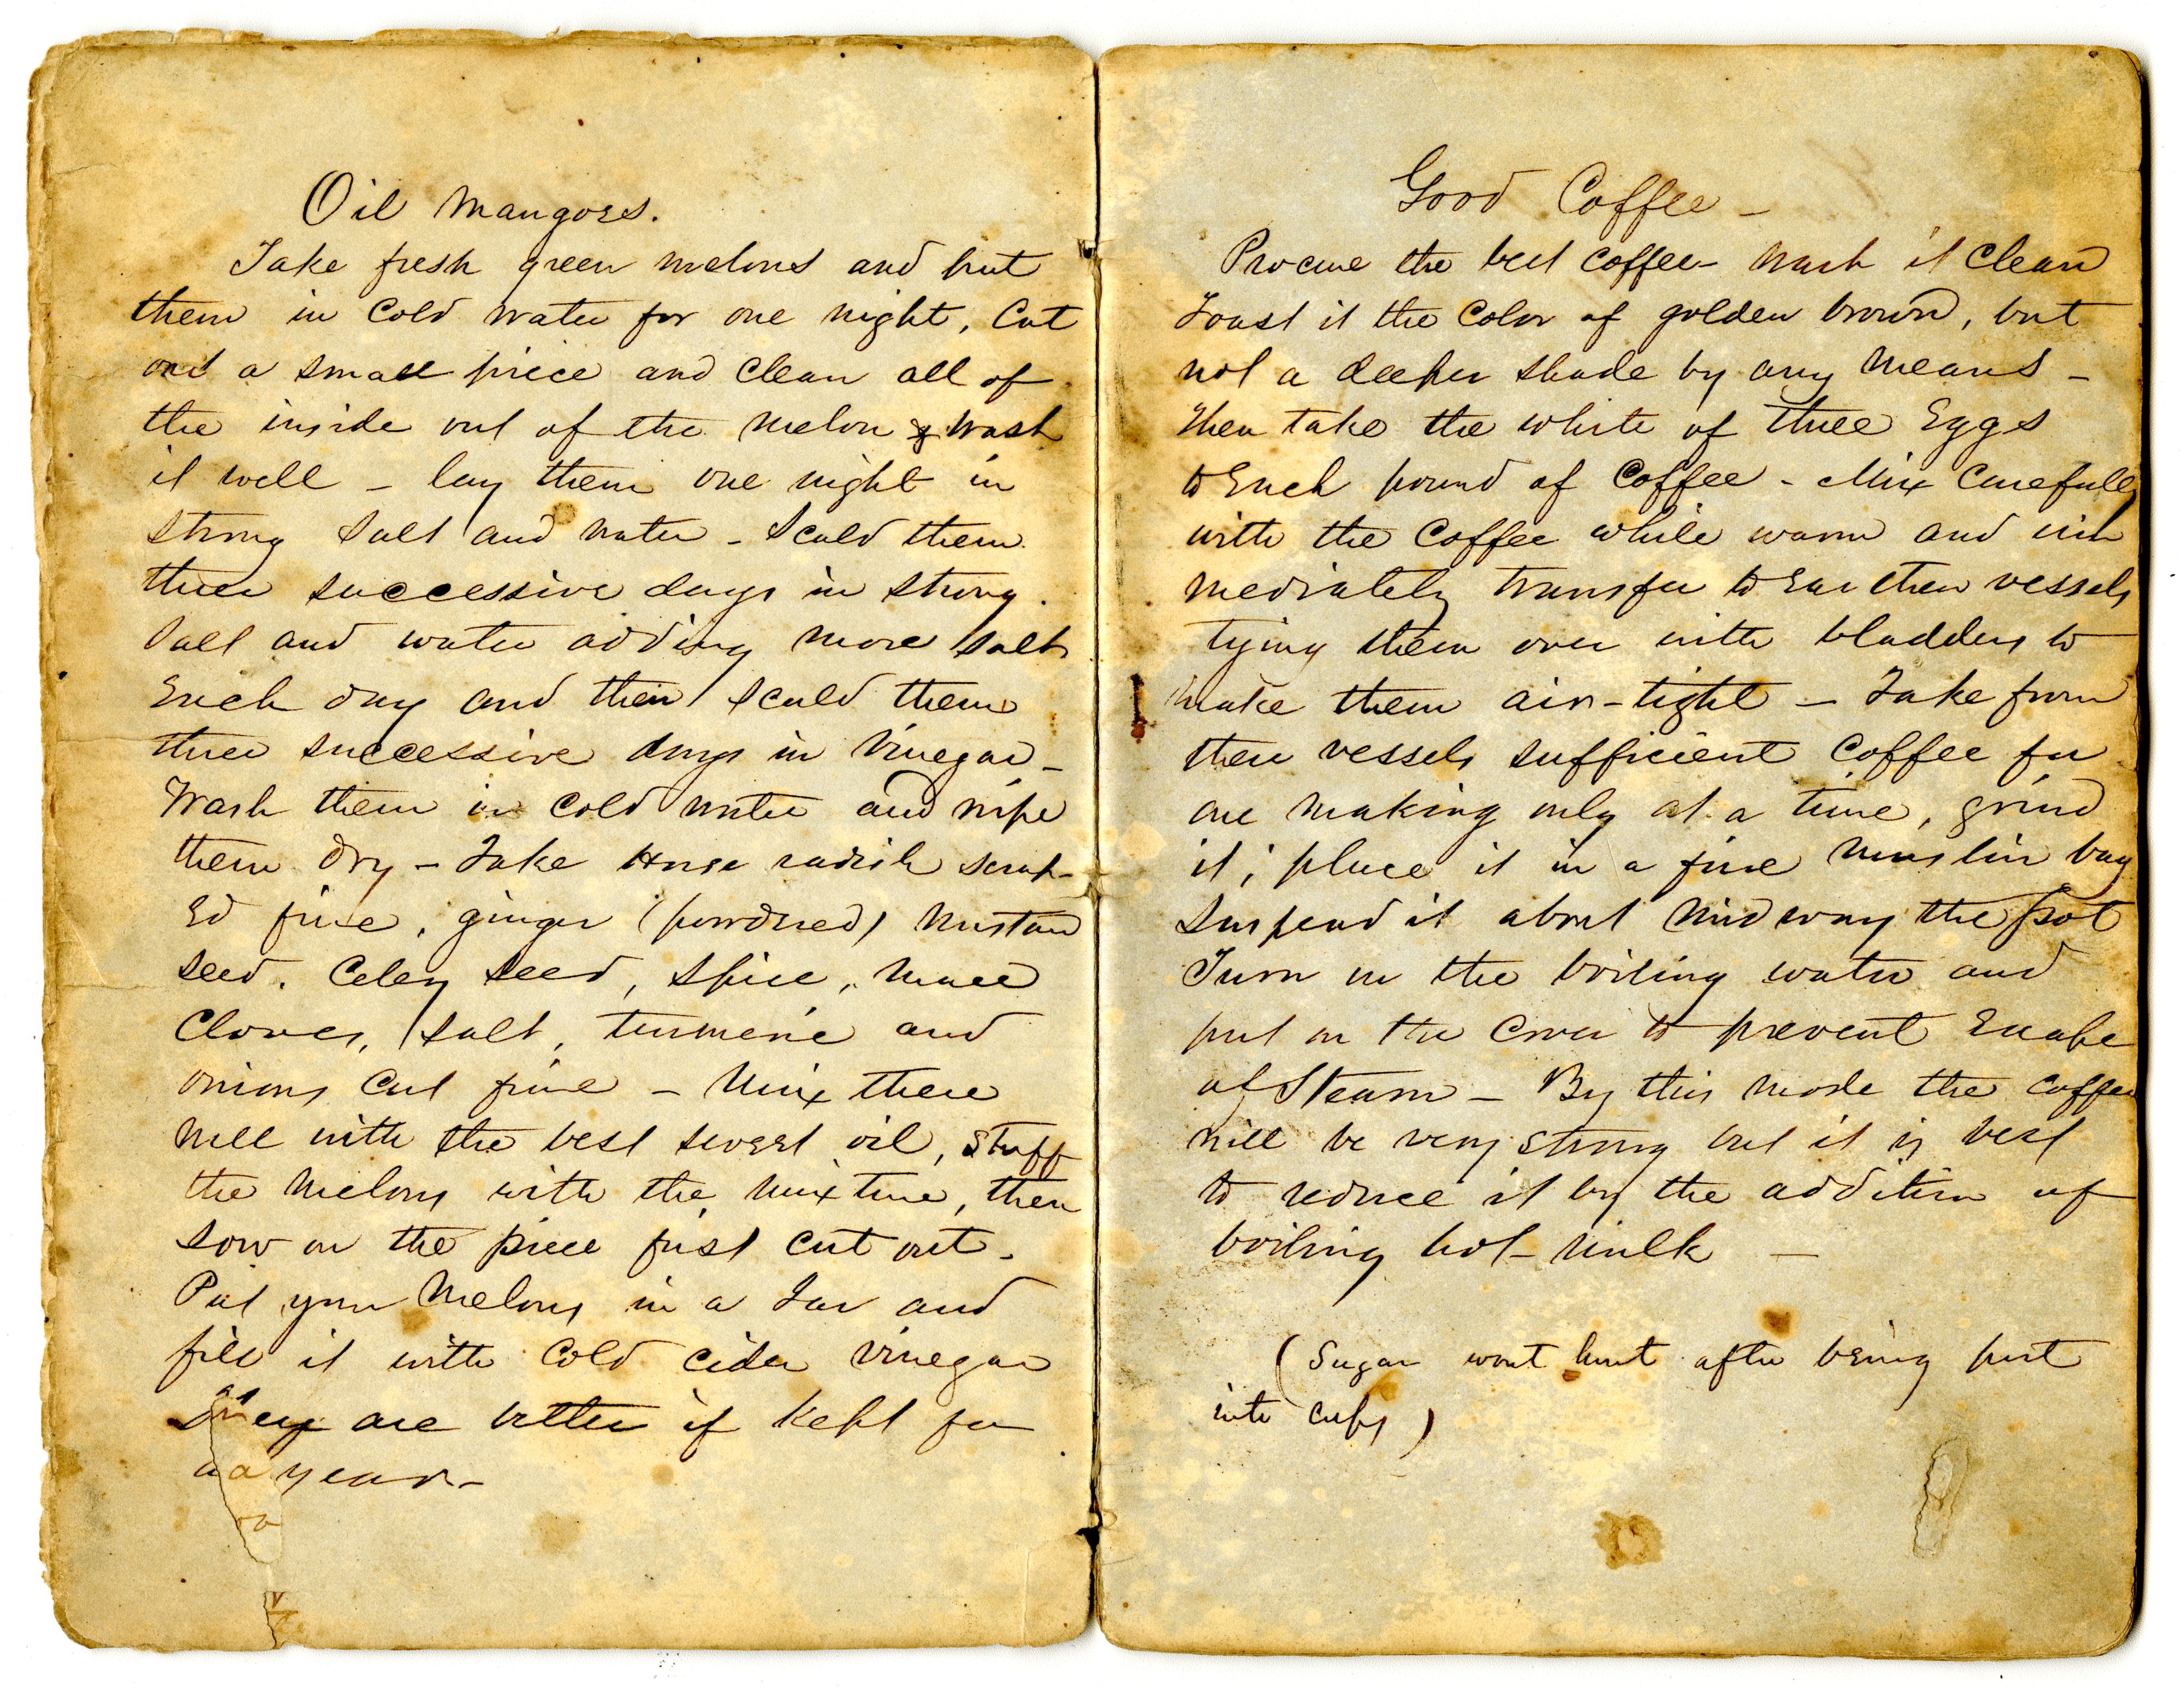 Oil Mangoes.
Take fresh green melons and put
them in Cold water for one night, Cut
out a small piece and clean all of
the inside out of the melon & wash
it well – lay them one night in
strong salt and water – Scald them
three successive days in strong
salt and water adding more salt
Each day and then scald them
three successive days in Vinegar –
Wash them in Cold water and wipe
them dry – Take Horse radish scrap-
Ed fine, ginger (powdered) Mustard
seed. Celery seed, Spice, Mace
Cloves, salt, turmeric and
onions Cut fine – Mix these
well with the best sweet oil, stuff
the melons with the mixture, then
sow on the piece first cut out –
Put your Melons in a Jar and
fill it with Cold Cider Vinegar
They are better if Kept for
a year –
Good Coffee –
Procure the best coffee – wash it clean
Toast it the Color of golden brown, but
not a deeper shade by any means –
Then take the white of three Eggs
to Each pound of Coffee – Mix Carefully
with the Coffee while warm and im
mediately transfer to Earthen vessels
tying them over with bladders to
make them air-tight – Take from
these vessels sufficient Coffee for
one making only at a time, grind
it; place it in a fine muslin bag
Suspend it about midway the pot
Turn in the boiling water and
put on the Cover to prevent Escape
of Steam – By this mode the coffee
will be very strong but it is best
to reduce it by the addition of
boiling hot – milk –
(Sugar wont hurt after being put
into cups)